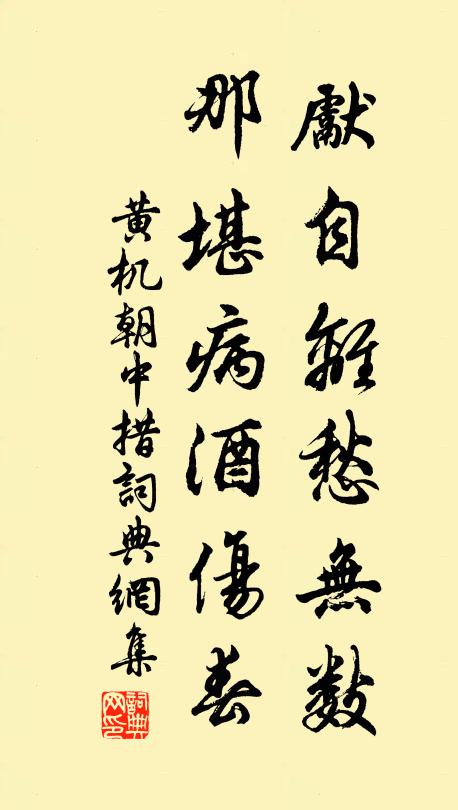 獻自離愁無數
那堪病酒傷春
黄机朝中措詞典網集
詞典网印